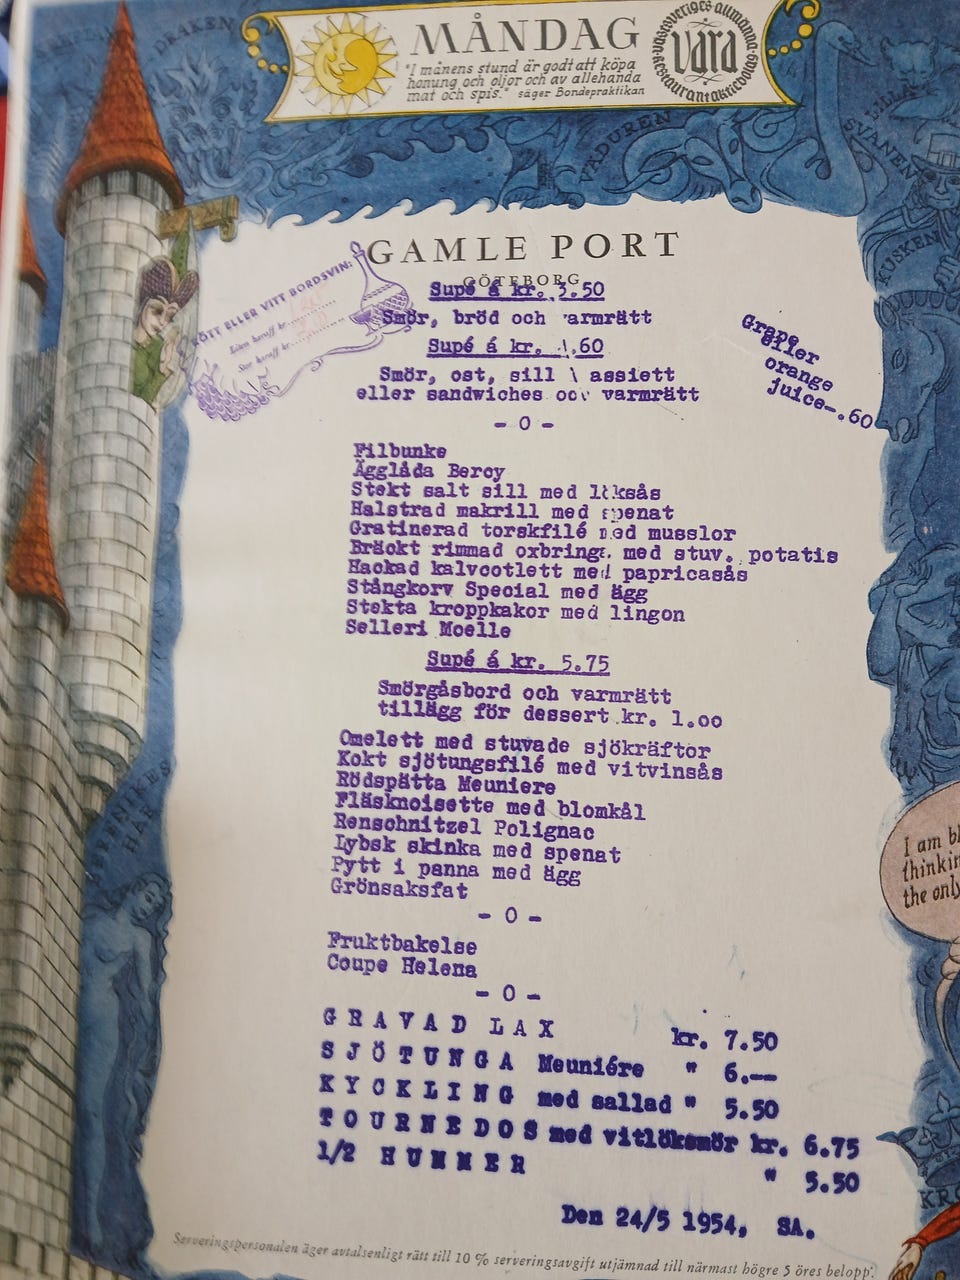 DRAKEN
MÅNDAG
"I månens stund är godt att köpa
honung och oljor och av allehanda
mat och spis." säger Bondepraktikan
västsveriges allmänna restaurantaktiebolag
vara
VÄDUREN
SVANEN
KUSKEN
GAMLE PORT
GÖTEBORG
RÖTT ELLER VITT BORDSVIN:
Liten karaff kr.
Stor karaff kr.
Supé á kr. 3.50
Smör, bröd och varmrätt
Supé á kr. 4.60
Smör, ost, sill \ assiett
eller sandwiches och varmrätt
Grape
eller
orange
juice-.60
- 0 -
Filbunke
Ägglåda Bercy
Stekt salt sill med löksås
Halstrad makrill med spenat
Gratinerad torskfilé med musslor
Bräckt rimmad oxbringa med stuv. potatis
Hackad kalvcotlett med papricasås
Stångkorv Special med ägg
Stekta kroppkakor med lingon
Selleri Moelle
Supé á kr. 5.75
Smörgåsbord och varmrätt
tillägg för dessert kr. 1.oo
Omelett med stuvade sjökräftor
Kokt sjötungsfilé med vitvinsås
Rödspätta Meuniere
Fläsknoisette med blomkål
Renschnitzel Polignac
Lybsk skinka med spenat
Pytt i panna med ägg
Grönsaksfat
- 0 -
Fruktbakelse
Coupe Helena
- 0 -
GRAVAD LAX kr. 7.50
SJÖTUNGA Meuniére " 6.--
KYCKLING med sallad " 5.50
TOURNEDOS med vitlöksmör kr. 6.75
1/2 HUMMER " 5.50
Den 24/5 1954, SA.
BERENIKES
HÅR
I am bl
thinkin
the only
KRO
Serveringspersonalen äger avtalsenligt rätt till 10 % serveringsavgift utjämnad till närmast högre 5 öres belopp.